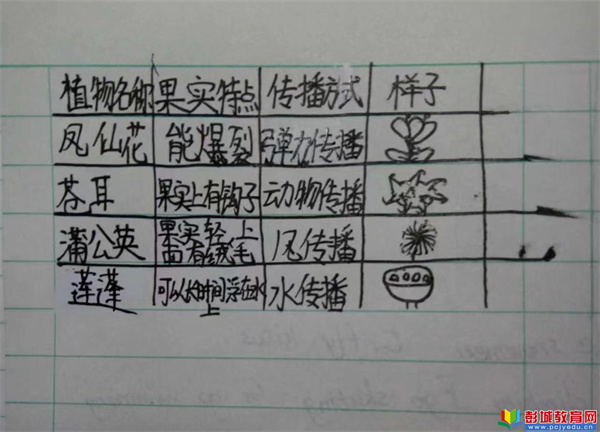 植物名称 果实特点 传播方式 样子
凤仙花 能爆裂 弹力传播
苍耳 果实上有钩子 动物传播
蒲公英 果实轻,上面有绒毛 风传播
莲蓬 可以长时间浮在水上 水传播
彭城教育网
www.pcjyedu.cn